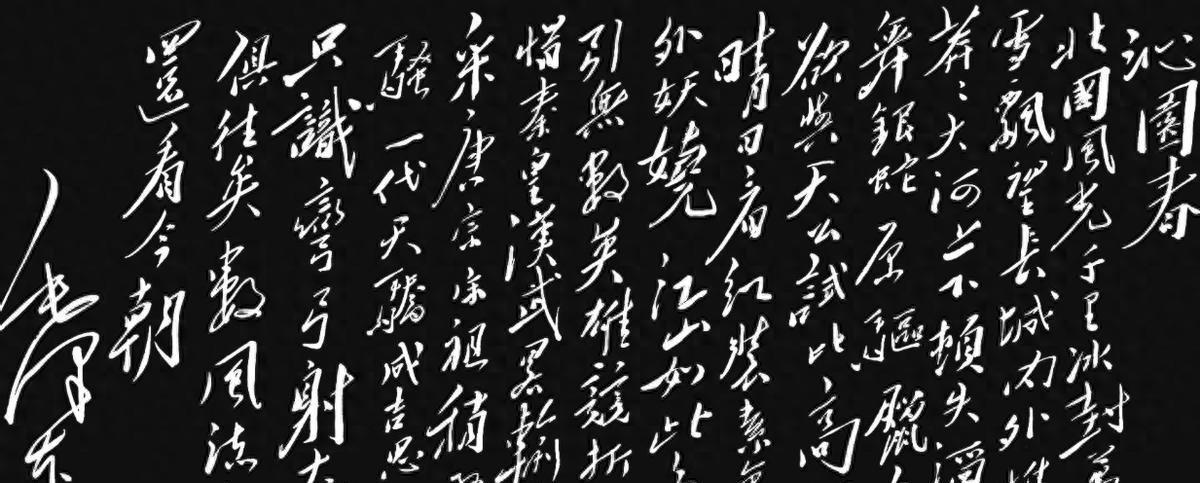 沁園春
北國風光千里冰封萬
雪飄望長城内外惟
莽〻大河上下頓失滔
舞銀蛇原驅臘
欲與天公試比高
晴日看紅裝素
外妖嬈江山如此
引無數英雄競折
惜秦皇漢武略輸
采唐宗宋祖稍
騷一代天驕成吉思
只識彎弓射大
俱往矣數風流
還看今朝
毛澤东